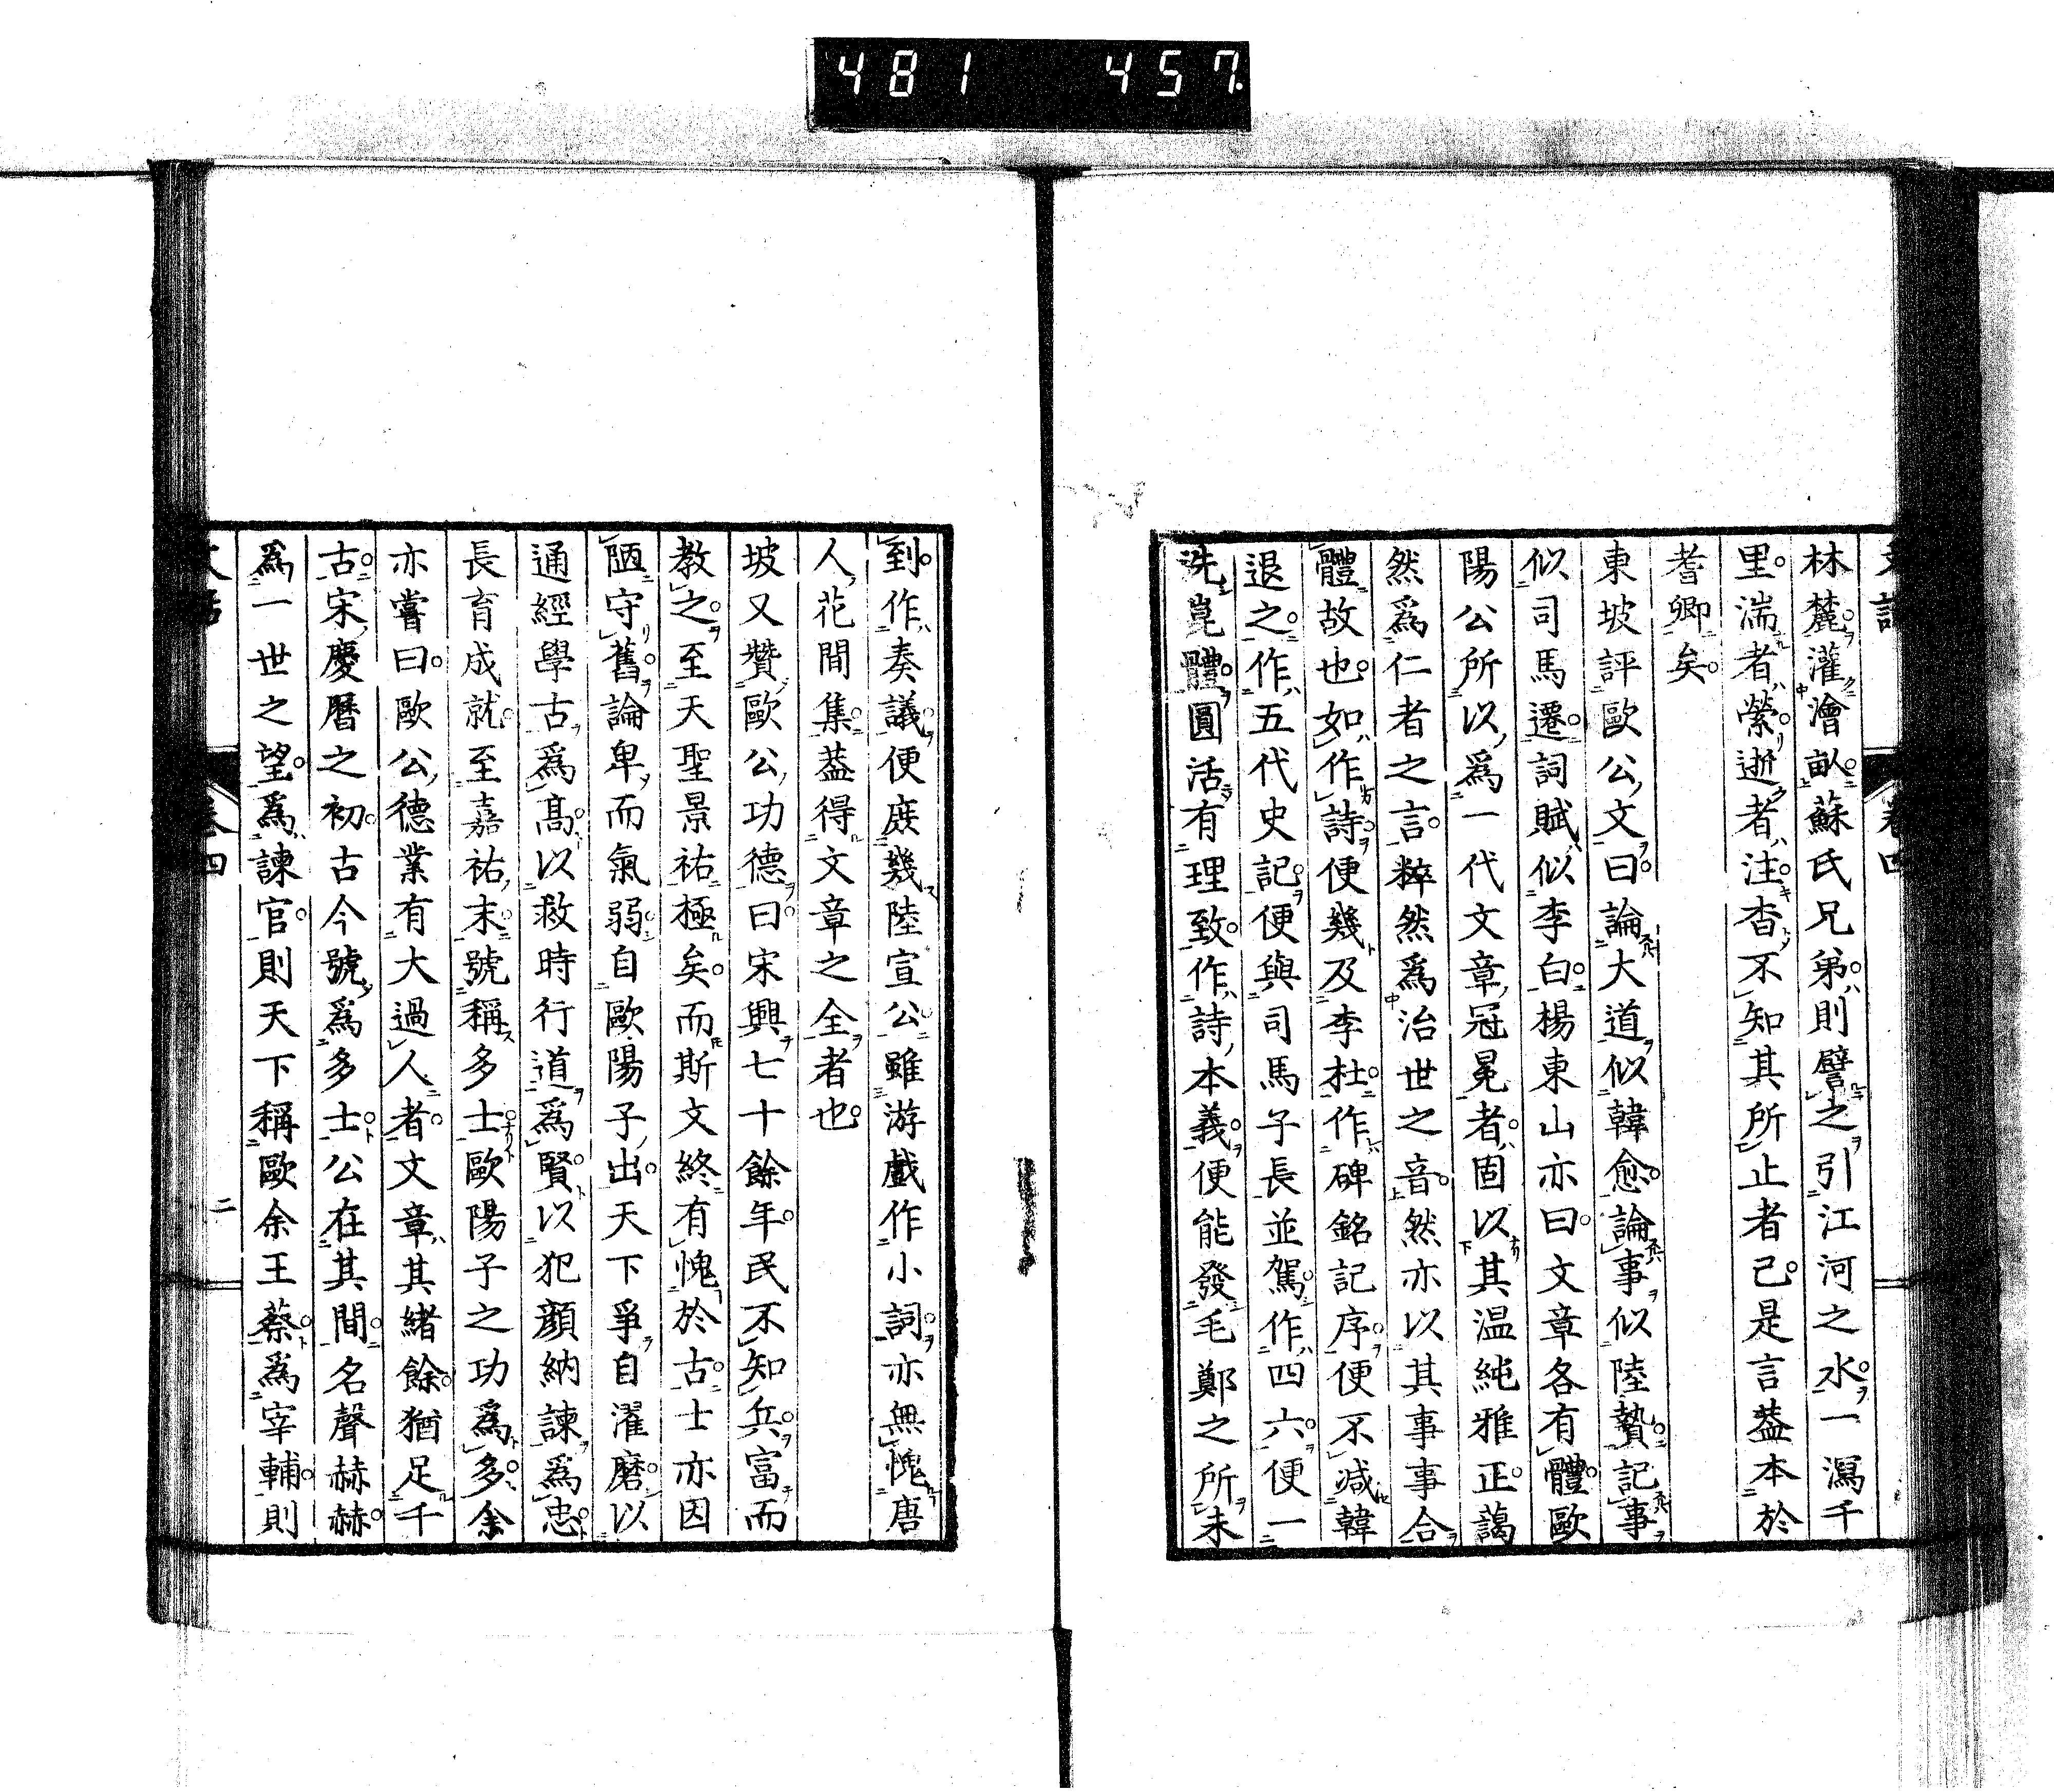 481 457
林麓灌澮畝蘇氏兄弟則譬之引江河之水一瀉千
里湍者縈逝者注杳不知其所止者已是言葢本於
耆卿矣
東坡評歐公文曰論大道似韓愈論事似陸贄記事
似司馬遷詞賦似李白楊東山亦曰文章各有體歐
陽公所以爲一代文章冠冕者固以其温純雅正藹
然爲仁者之言粹然爲治世之音然亦以其事事合
體故也如作詩便幾及李杜作碑銘記序便不减韓
退之作五代史記便與司馬子長並駕作四六便一
洗崑體圓活有理致作詩本義便能發毛鄭之所未
到作奏議便庶幾陸宣公雖游戲作小詞亦無愧唐
人花間集葢得文章之全者也
坡又贊歐公功德曰宋興七十餘年民不知兵富而
教之至天聖景祐極矣而斯文終有愧於古士亦因
陋守舊論卑而氣弱自歐陽子出天下爭自濯磨以
通經學古爲高以救時行道爲賢以犯顔納諫爲忠
長育成就至嘉祐末號稱多士歐陽子之功爲多余
亦嘗曰歐公德業有大過人者文章其緒餘猶足千
古宋慶曆之初古今號爲多士公在其間名聲赫赫
爲一世之望爲諫官則天下稱歐余王蔡爲宰輔則
二